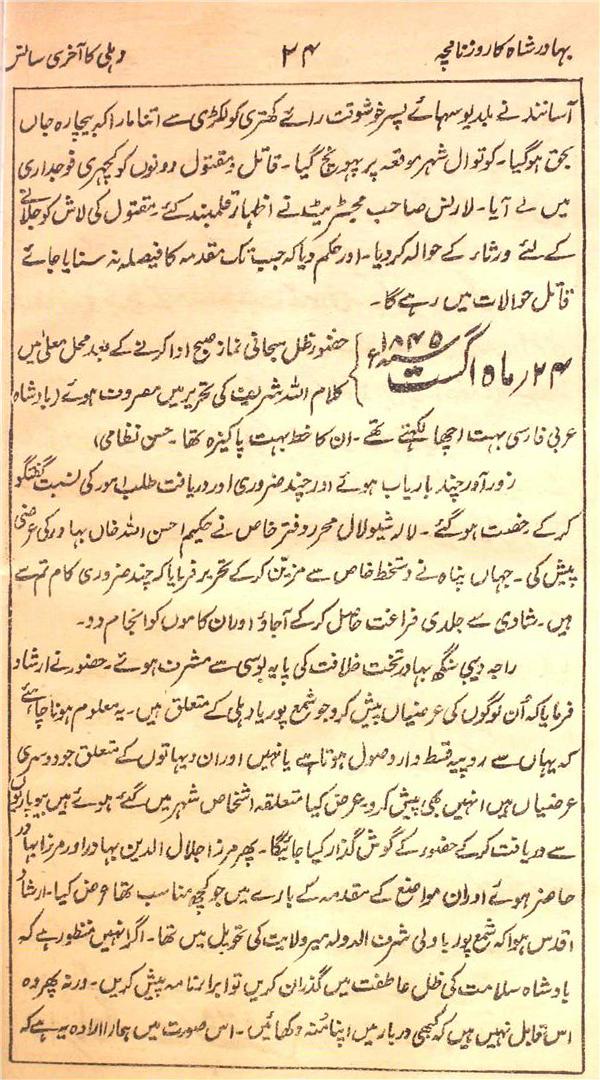 بہادر شاہ کا روزنامچہ
۲۴
دہلی کا آخری سانس
آسانند نے بلدیو سہائے پسر خوشوقت رائے کھتری کو لکڑی سے اتنا مارا کہ بیچارہ جاں
بحق ہوگیا۔ کوتوال شہر موقعہ پر پہونچ گیا۔ قاتل و مقتول دونوں کو کچہری فوجداری
میں لے آیا۔ لارنس صاحب مجسٹریٹ نے اظہار قلمبند کئے۔ مقتول کی لاش کو جلانے
کے لئے ورثاء کے حوالہ کر دیا۔ اور حکم دیا کہ جب تک مقدمہ کا فیصلہ نہ سنایا جائے
قاتل حوالات میں رہے گا۔
۲۴ ماہ اگست سنہ ۱۸۴۵ء
حضور ظل سبحانی نماز صبح ادا کرنے کے بعد محل معلیٰ میں
کلام اللہ شریف کی تحریر میں مصروف ہوئے (بادشاہ
عربی فارسی بہت اچھا لکھتے تھے۔ ان کا خط بہت پاکیزہ تھا۔ حسن نظامی)
زور آور چند باریاب ہوئے اور چند ضروری اور دریافت طلب امور کی نسبت گفتگو
کر کے رخصت ہوگئے۔ لالہ شیولال محرر دفتر خاص نے حکیم احسن اللہ خاں بہادر کی عرضی
پیش کی۔ جہاں پناہ نے دستخط خاص سے مزین کر کے تحریر فرمایا کہ چند ضروری کام تم سے
ہیں۔ شادی سے جلدی فراغت حاصل کر کے آجاؤ اور ان کاموں کو انجام دو۔
راجہ دیبی سنگھ بہادر تخت خلافت کی پایہ بوسی سے مشرف ہوئے۔ حضور نے ارشاد
فرمایا کہ اُن لوگوں کی عرضیاں پیش کرو جو شمع پور یا دہلی کے متعلق ہیں۔ یہ معلوم ہونا چاہئے
کہ یہاں سے روپیہ قسط وار وصول ہوتا ہے یا نہیں اور ان دیہاتوں کے متعلق جو دوسری
عرضیاں ہیں انہیں بھی پیش کرو۔ عرض کیا متعلقہ اشخاص شہر میں گئے ہوئے ہیں بیوپاریوں
سے دریافت کر کے حضور کے گوش گذار کیا جائیگا۔ پھر مرزا جلال الدین بہادر اور مرزا بہادر
حاضر ہوئے اور ان مواضع کے مقدمہ کے بارے میں جو کچھ مناسب تھا عرض کیا۔ ارشاد
اقدس ہوا کہ شمع پور یا ولی شرف الدولہ میر ولایت کی تحویل میں تھا۔ اگر انہیں منظور ہے کہ
بادشاہ سلامت کی ظل عاطفت میں گذران کریں تو ابرانامہ پیش کریں۔ ورنہ پھر وہ
اس قابل نہیں ہیں کہ کبھی دربار میں اپنا منہ دکھائیں۔ اس صورت میں ہمارا ارادہ یہ ہے کہ